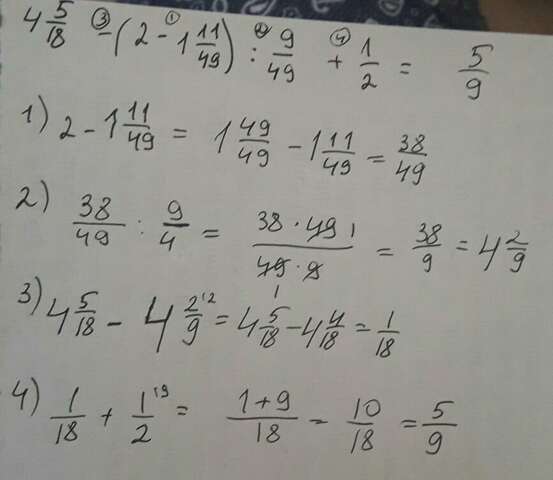 4 5/18 ③ − (2 ① − 1 11/49) ② : 9/49 ④ + 1/2 = 5/9
1) 2 - 1 11/49 = 1 49/49 - 1 11/49 = 38/49
2) 38/49 : 9/4 = 38 · 49 1/49 · 9 1 = 38/9 = 4 2/9
3) 4 5/18 - 4 2/9 ^(12 = 4 5/18 - 4 4/18 = 1/18
4) 1/18 + 1/2 ^(9 = 1+9/18 = 10/18 = 5/9